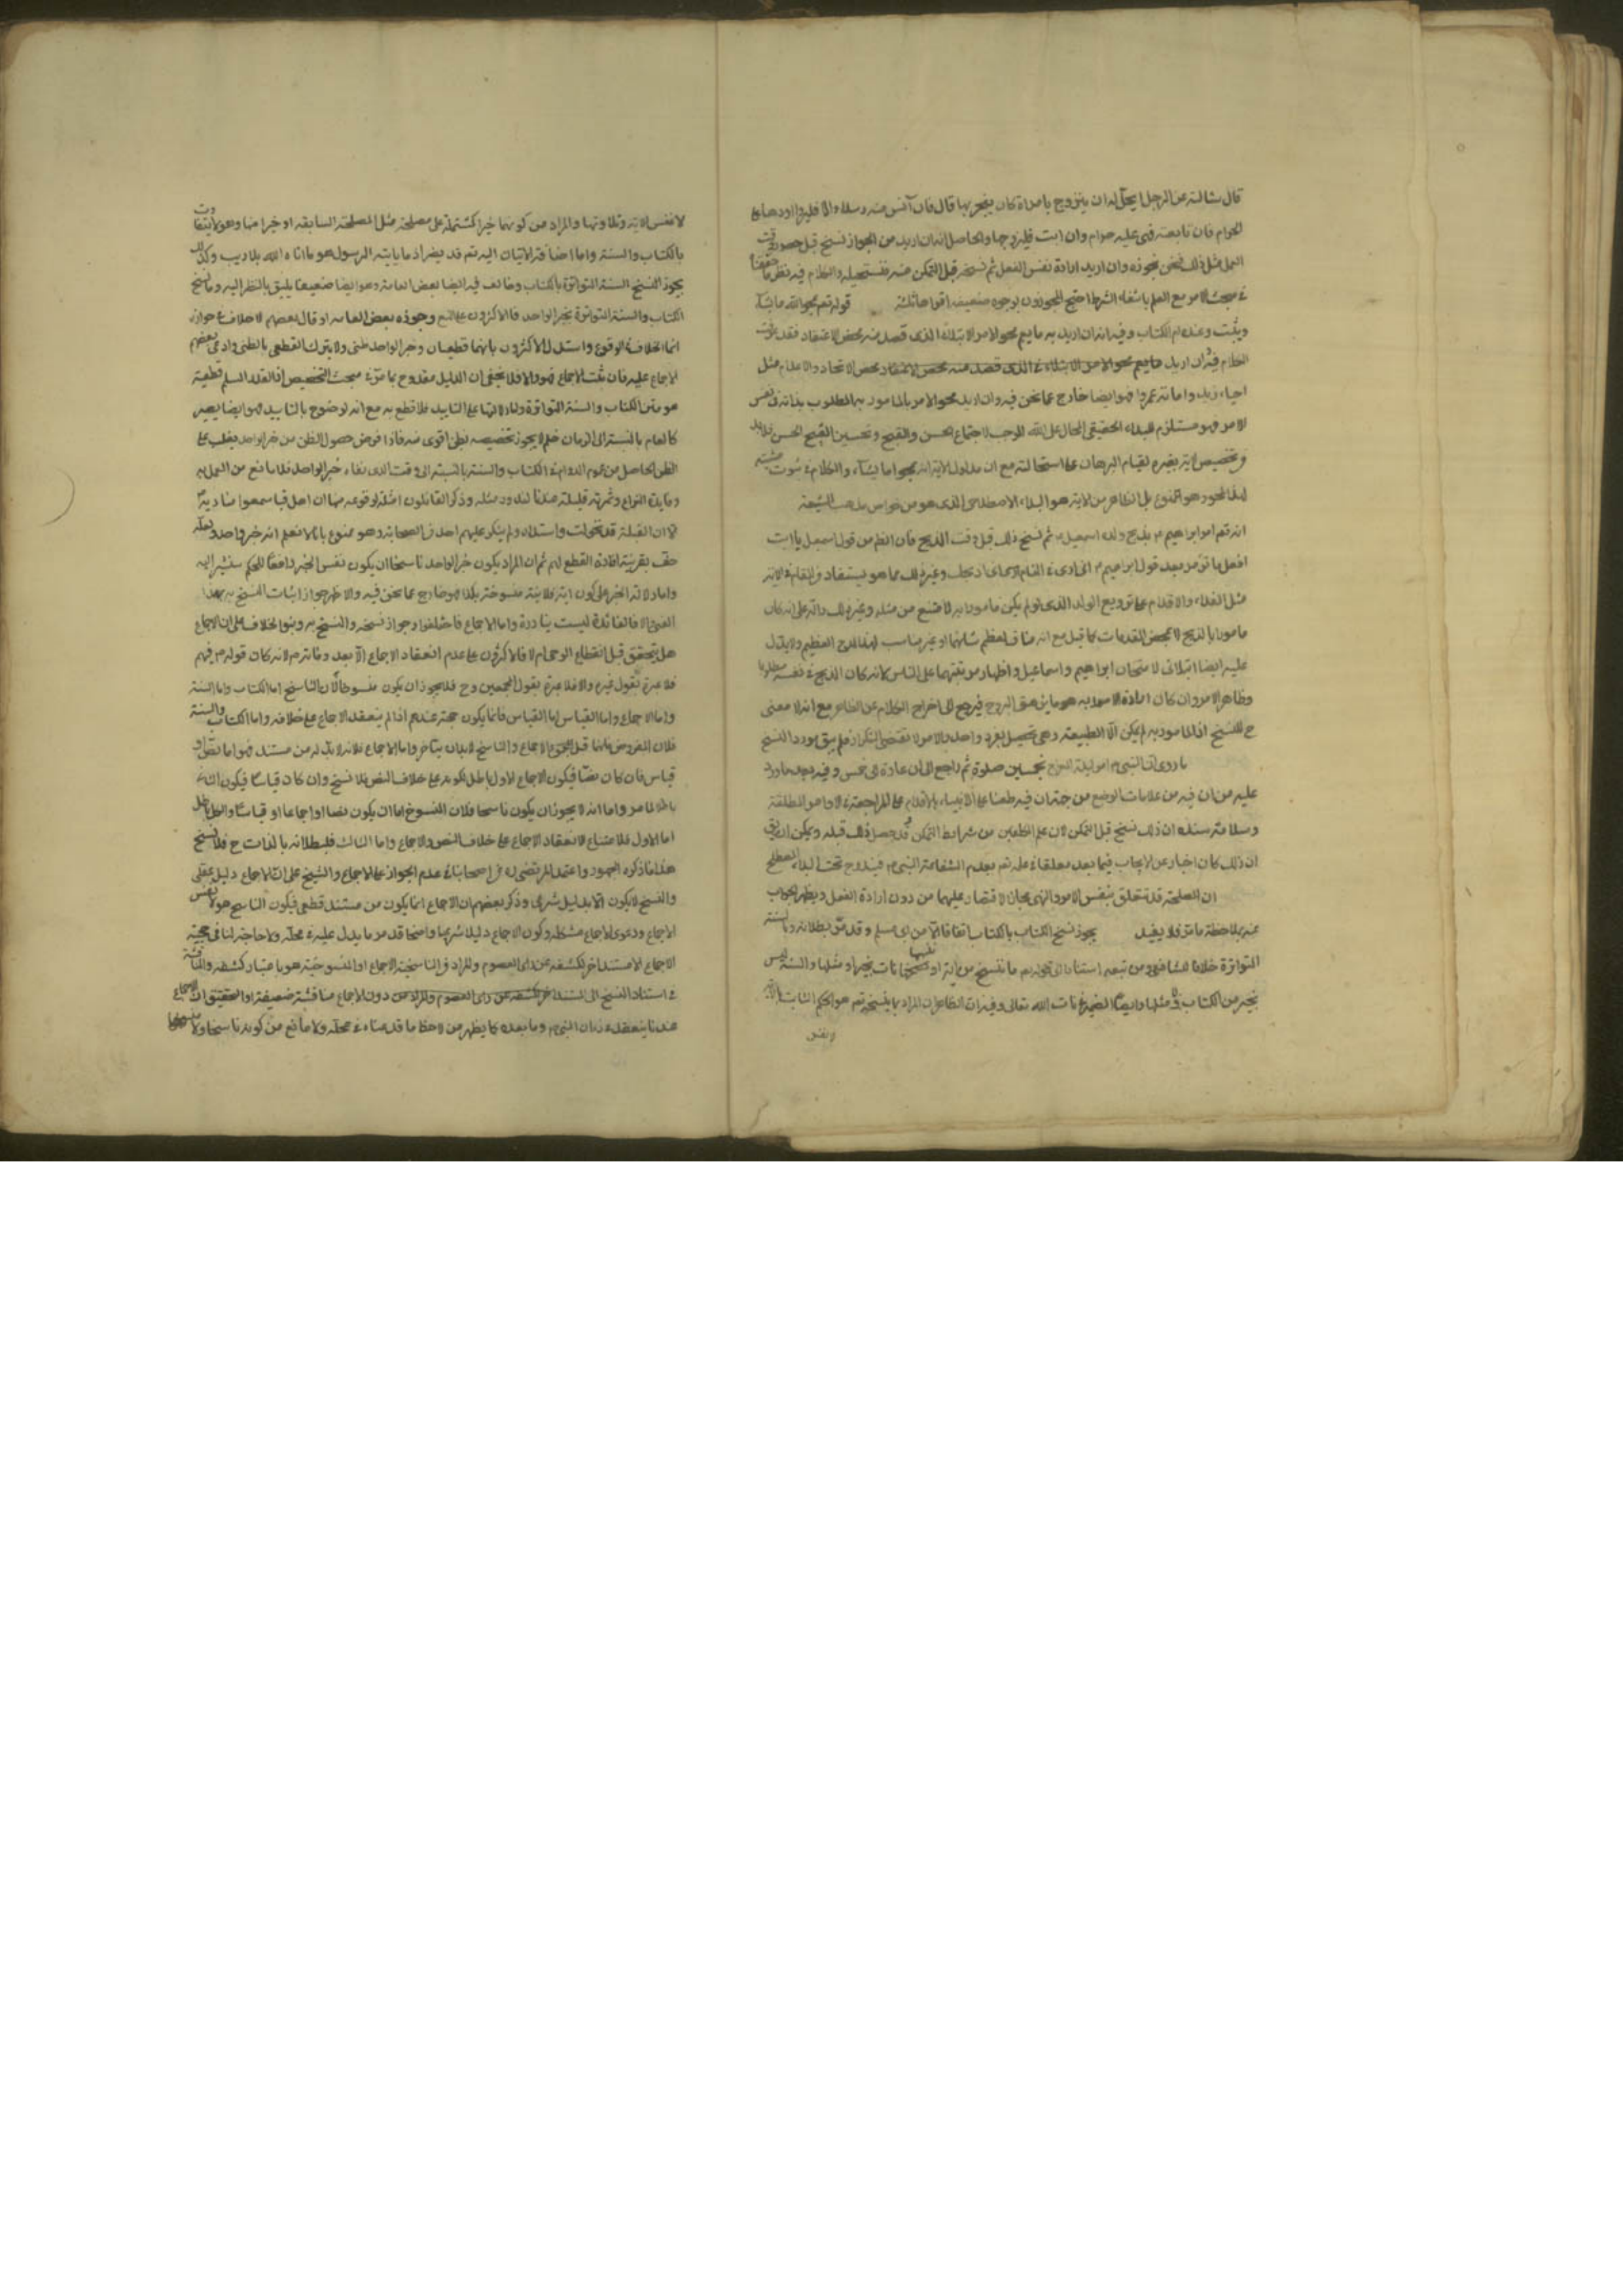 قال سالته عن الرجل ايحل له ان يتزوج بامراة كان يفجر بها قال فان آنس منه رسدا والا فليراودها على
الحرام فان تابعته فهى عليه حرام وان ابت فليتزوجها والحاصل انه ان اريد من الجواز نسخ قبل حضور وقت
العمل مثل ذلك فنحن نجوزه وان اريد ارادة نفس الفعل ثم نسخه قبل التمكن منه فنستحيله والكلام فيه نظير ما حققنا
فى مبحث الامر مع العلم بانتفاء الشرط احتج المجوزون بوجوه ضعيفة اقواها ثلثة قوله تعم يمحو الله ما يشآء
ويثبت وعنده ام الكتاب وفيه انه ان اريد به ما يعم محو الامر الابتلائى الذى قصد منه محض الاعتقاد فقد
الكلام فيه وان اريد محض الاتحاد والاعدام مثل
احياء زيد واماتة عمرو فهو ايضا خارج عما نحن فيه وان اريد محو الامر بالمامور به المطلوب بذاته فى نفس
الامر فهو مستلزم للبداء الحقيقى المحال على الله الموجب لاجتماع الحسن والقبح وتحسين القبيح الحسن فلابد
من تخصيص الاية بغيره لقيام البرهان على استحالته مع ان مدلول الاية انه يمحو اما يشآء والكلام فى ثبوت مشيته
لهذا المحو وهو الممنوع بل الظاهر من الاية هو البداء الاصطلاحى الذى هو من خواص مذهب الشيعة
انه تعم امر ابراهيم م بذبح ولده اسمعيل م ثم نسخ ذلك قبل وقت الذبح فان الظ من قول اسمعيل يا ابت
افعل ما تؤمر بعد قول ابراهيم م انى ارى فى المنام انى اذبحك وغير ذلك مما هو يستفاد فى المقام من الاية
مثل الفداء والاقدام على ترويع الولد الذى لو لم يكن مامورا به لامتنع من مثله وغير ذلك دالة على انه كان
مامورا بالذبح لا بمحض المقدمات كما قيل مع انه مناف لعظم شانهما وغير مناسب لهذا المدح العظيم ولا يدل
عليه ايضا ابتلائى لامتحان ابراهيم واسماعيل واظهار مرتبتهما على الناس لانه كان الذبح فى نفسه مطلوبا
وظاهر الامر وان كان ارادة المامور به
ح للنسخ اذ المامور به لم يكن الا الطبيعة وهى تحصيل بفرد واحد والامر لا يقتضى التكرار فلم يبق مورد النسخ
ما روى ان النبى م امر ليلة المعراج بخمسين صلوة ثم راجع الى ان عادة الى خمس وفيه بعد ما ورد
عليه من ان فيه من علامات الوضع من جهة ان فيه طعنا على الانبياء بالاقدام على المراجعة فى الاوامر المطلقة
وسلامة سنده ان ذلك نسخ قبل التمكن لان علم المكلفين من شرايط التمكن وقد حصل ذلك قبله ويمكن ان يق
ان ذلك كان اخبار عن الايجاب فيما بعد معلقا فى علمه تعم بعدم الشفاعة النبى م فيندرج تحت البداء المصطلح
ان المصلحة قد تتعلق بنفس الامر والنهى بجاز الاقتصار عليهما من دون ارادة الفعل ويظهر الجواب
عنه بملاحظة ما مر فلا يفيد يجوز نسخ الكتاب بالكتاب اتفاقا الا من ابى مسلم وقد مر بطلانه وبالسنة
المتواترة خلافا للشافعى ومن تبعه استنادا الى قوله تعم ما ننسخ من آية او ننسها نات بخير او مثلها والسنة ليس
بخير من الكتاب ولا مثلها وايضا الضمير فى نات الله تعالى وفيه ان الظاهر ان المراد بما ينسخه تعم هو الحكم الثابت بالاية
لا نفس
لا نفس الاية وتلاوتها والمراد من كونهما خيرا كمشتملة على مصلحة مثل المصلحة السابقة او خيرا منها وهو لا يتفاوت
بالكتاب والسنة واما اضافة الاتيان اليه تعم قد يضر اذ ما ياتيه الرسول هو ما اتاه الله بلا ريب وكذلك
يجوز النسخ السنة المتواترة بالكتاب وخالف فيه ايضا بعض العامة وهو ايضا ضعيف يليق بالنظر اليه وما نسخ
الكتاب والسنة المتواترة بخبر الواحد فالاكثرون على المنع وجوزه بعض العامة او قال بعضهم لا خلاف فى جوازه
انما الخلاف فى الوقوع واستدل الاكثرون بانهما قطعيان وخبر الواحد ظنى ولا يترك القطعى بالظنى وادعى بعضهم
الاجماع عليه فان ثبت الاجماع فهو والا فلا يخفى ان الدليل مقدوح بما مر فى مبحث التخصيص اذ القدر المسلم قطعية
هو متن الكتاب والسنة المتواترة ودلالتها على التابيد فلا قطع به مع انه لو ضوح بالتابيد فهو ايضا يصير
كالعام بالنسبة الى الازمان فلم لا يجوز تخصيصه بظنى اقوى منه فاذا فرض حصول الظن من خبر الواحد يغلب على
الظن الحاصل من عموم الدوام فى الكتاب والسنة بالنسبة الى وقت الذى بقاء خبر الواحد فلا مانع من العمل به
وفايدة النزاع وثمرته قليلة عندنا لندور مثله وذكر القائلون امثلة لوقوعه منها ان اهل قبا سمعوا مناديه م
الا ان القبلة قد تحولت واستدار ولم ينكر عليهم احد من الصحابة وهو ممنوع بانا لا نعلم انه خبر واحد ولعله
حف بقرينة افادة القطع لهم ثم ان المراد بكون خبر الواحد ناسخا ان يكون نفس الخبر رافعا للحكم سنشير اليه
واما دلالة الخبر على كون اية فلانية منسوخة بكذا فهو خارج عما نحن فيه والاظهر جواز اثبات النسخ به بهذا
المعنى الا فالفائدة ليست بنادرة واما الاجماع فاختلفوا فى جواز نسخه والنسخ به وبنوا الخلاف على ان الاجماع
هل يتحقق قبل انقطاع الوحى ام لا فالاكثرون على عدم انعقاد الاجماع الا بعد وفاته م لانه كان قوله م فيهم
فلا عبرة بقول غيره والا فلا عبرة بقول المجمعين وح فلا يجوز ان يكون منسوخا لان الناسخ اما الكتاب واما السنة
واما الاجماع واما القياس اما القياس فانما يكون حجة عندهم اذا لم ينعقد الاجماع على خلافه واما الكتاب والسنة
فلان المفروض انهما قبل الاجماع والناسخ لابد ان يتاخر واما الاجماع فلانه لابد له من مستند فهو اما نص او
قياس فان كان نصا فيكون الاجماع الاول باطل لكونه على خلاف النص فلا نسخ وان كان قياسا فيكون الثانى
باطلا لما مر واما انه لا يجوز ان يكون ناسخا فلان المنسوخ اما ان يكون نصا او اجماعا او قياسا والكل باطل
اما الاول فلامتناع الانعقاد الاجماع على خلاف النص والاجماع واما الثالث فلبطلانه بالذات ح فلا نسخ
هذا ما ذكره الجمهور واعتمد المرتضى ره من اصحابنا فى عدم الجواز على الاجماع والشيخ على ان الاجماع دليل عقلى
والنسخ لا يكون الا بدليل شرعى وذكر بعضهم ان الاجماع انما يكون من مستند قطعى فيكون الناسخ هو لا نفس
الاجماع ودعوى الاجماع مشكلة وكون الاجماع دليلا شرعيا واضحا قد مر ما يدل عليه فى محله ولا حاجة لنا فى حجية
الاجماع لا مستند اخر لكشفه عن راى المعصوم والمراد فى الناسخية الاجماع او المنسوخية هو باعتبار كشفه والمناقشة
فى استناد النسخ الى المستند دون الاجماع مناقشة ضعيفة والتحقيق ان الاجماع
عندنا ينعقد فى زمان النبى م وما بعده كما يظهر من لاحظ ما قدمناه فى محله ولا مانع من كونه ناسخا ولا منسوخا